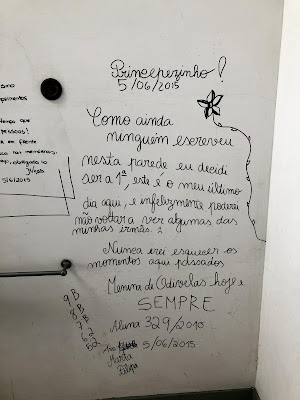 Princepezinho!
5/06/2015
Como ainda
ninguém escreveu
nesta parede eu decidi
ser a 1ª, este é o meu último
dia aqui, e infelizmente poderei
não voltar a ver algumas das
minhas irmãs.
Nunca irei esquecer os
momentos aqui passados
Menina de Odivelas hoje e
SEMPRE
Aluna 329/2010
5/06/2015
Marta
tempo que
pessoas!
em frente
5/6/2015
9 B
8 B
7 B
6